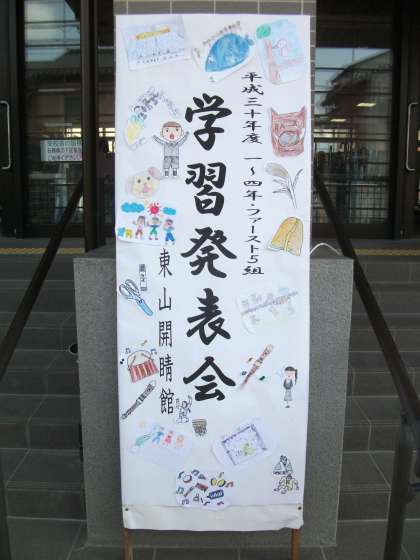 平成三十年度 一〜四年・ファースト5組
学習発表会
東山開晴館